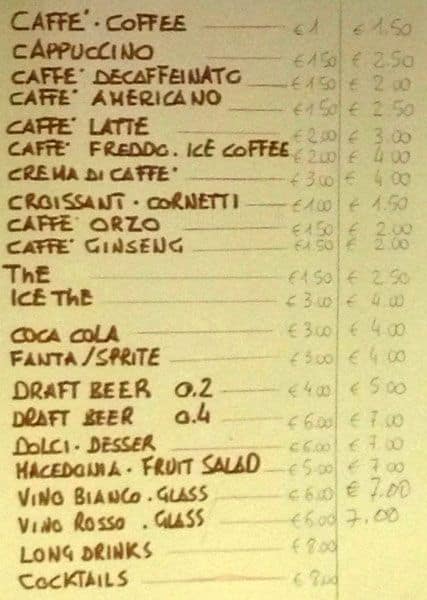 CAFFE' · COFFEE € 1 € 1.50
CAPPUCCINO € 1.50 € 2.50
CAFFE' DECAFFEINATO € 1.50 € 2.00
CAFFE' AMERICANO € 1.50 € 2.50
CAFFE' LATTE € 2.00 € 3.00
CAFFE' FREDDO. ICE COFFEE € 2.00 € 4.00
CREMA DI CAFFE' € 3.00 € 4.00
CROISSANT · CORNETTI € 1.00 € 1.50
CAFFE' ORZO € 1.50 € 2.00
CAFFE' GINSENG € 1.50 € 2.00
THE € 1.50 € 2.50
ICE THE € 3.00 € 4.00
COCA COLA € 3.00 € 4.00
FANTA/SPRITE € 3.00 € 4.00
DRAFT BEER 0.2 € 4.00 € 5.00
DRAFT BEER 0.4 € 6.00 € 7.00
DOLCI · DESSER € 6.00 € 7.00
MACEDONIA · FRUIT SALAD € 5.00 € 7.00
VINO BIANCO . GLASS € 6.00 € 7.00
VINO ROSSO . GLASS € 6.00 7.00
LONG DRINKS € 8.00
COCKTAILS € 8.00